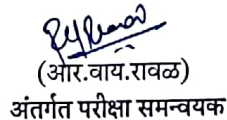 (आर.वाय.रावळ)
अंतर्गत परीक्षा समन्वयक